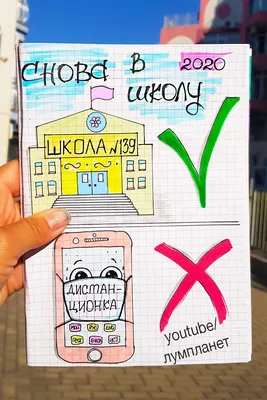 СНОВА В
2020
ШКОЛУ
ШКОЛА №139
ДИСТАН-
ЦИОНКА
youtube/
лумпланет